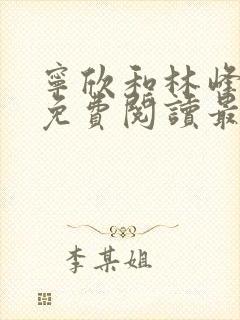 寧欣和林峰
免費閱讀最
李某姐